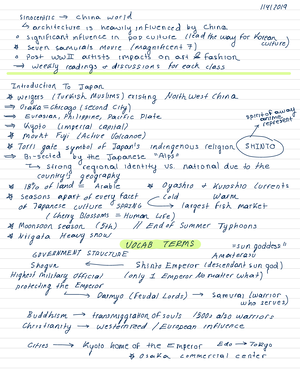 11/4/2019
Sinocentric → China World
↳ architecture is heavily influenced by China
◦ Significant influence in pop culture (lead the way for Korean culture)
* Seven Samurais Movie (Magnificent 7)
◦ Post WWII artists impacts on art & Fashion
→ Weekly readings & discussions for each class
Introduction To Japan
* Weigers (Turkish Muslims) existing North West China
⇒ Osaka = Chicago (second City)
⇒ Eurasian, Philippine, Pacific Plate
⇒ Kyoto (imperial capital)
* Mount Fuji (Active Volcano)
* Torii gate symbol of Japan's indingenous religion
SHINTO
⇒ Bi-sected by the Japanese "Alps"
↳ Strong regional identity vs. national due to the country's geography
* 18% of land = Arable
* Oyashio & Kuroshio Currents
Cold Warm
* Seasons apart of every facet of Japanese culture SPRING
largest fish market
(Cherry Blossoms = Human Life)
* Monsoon season (5th) // End of Summer Typhoons
* Niigata Heavy snow
VOCAB TERMS
"sun goddess"
GOVERNMENT STRUCTURE
Amaterasu
Shogun
Shinto Emperor (descendant sun god)
Highest Military official
(only 1 Emperor No matter what)
protecting the Emperor
↳ Daimyo (Feudal Lords) → Samurai (warrior who serves)
Buddhism → transmigration of souls 1500s also warriors
Christianity → Westernized / European influence
Cities → Kyoto home of the Emperor Edo → Tokyo
* Osaka commercial center